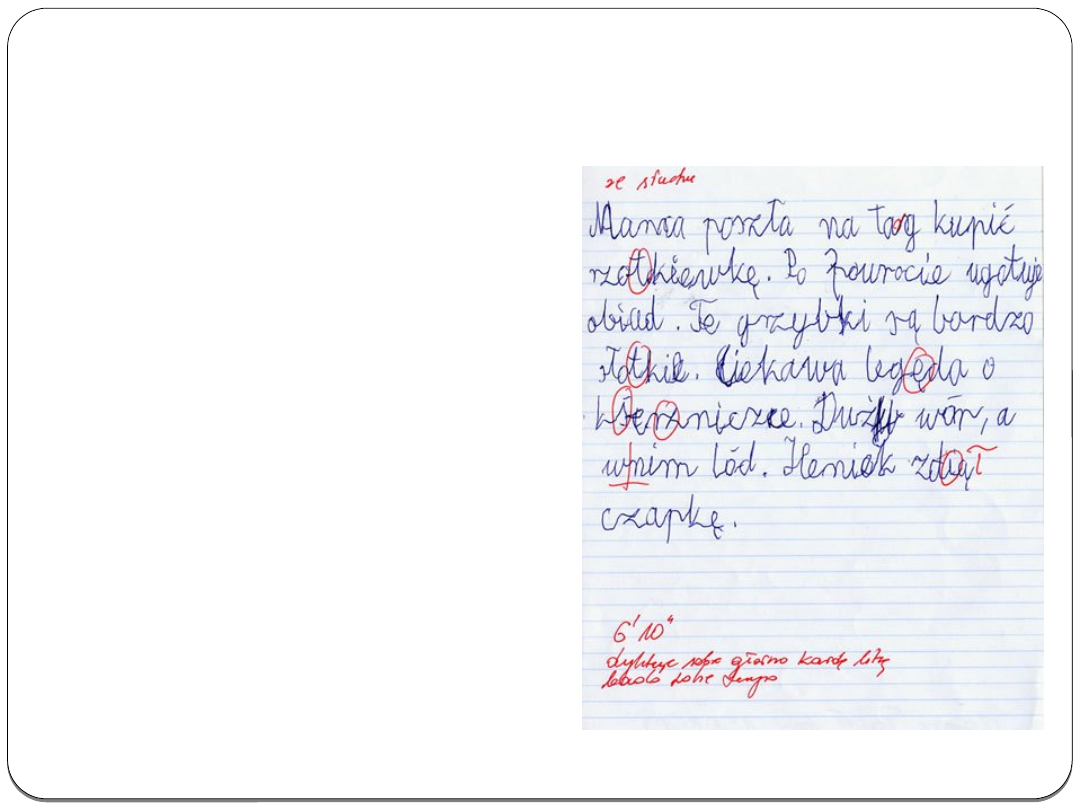 ze słuchu
Mama poszła na targ kupić
rzotkiewkę. Po powrocie ugotuje
obiad. Te grzybki są bardzo
słotkie. Ciekawa legęda o
kiężniczce. Duży wór, a
wnim lód. Heniek zdią ł
czapkę.
6' 10"
dyktuje sobie głośno każdą literę
sobie tempo